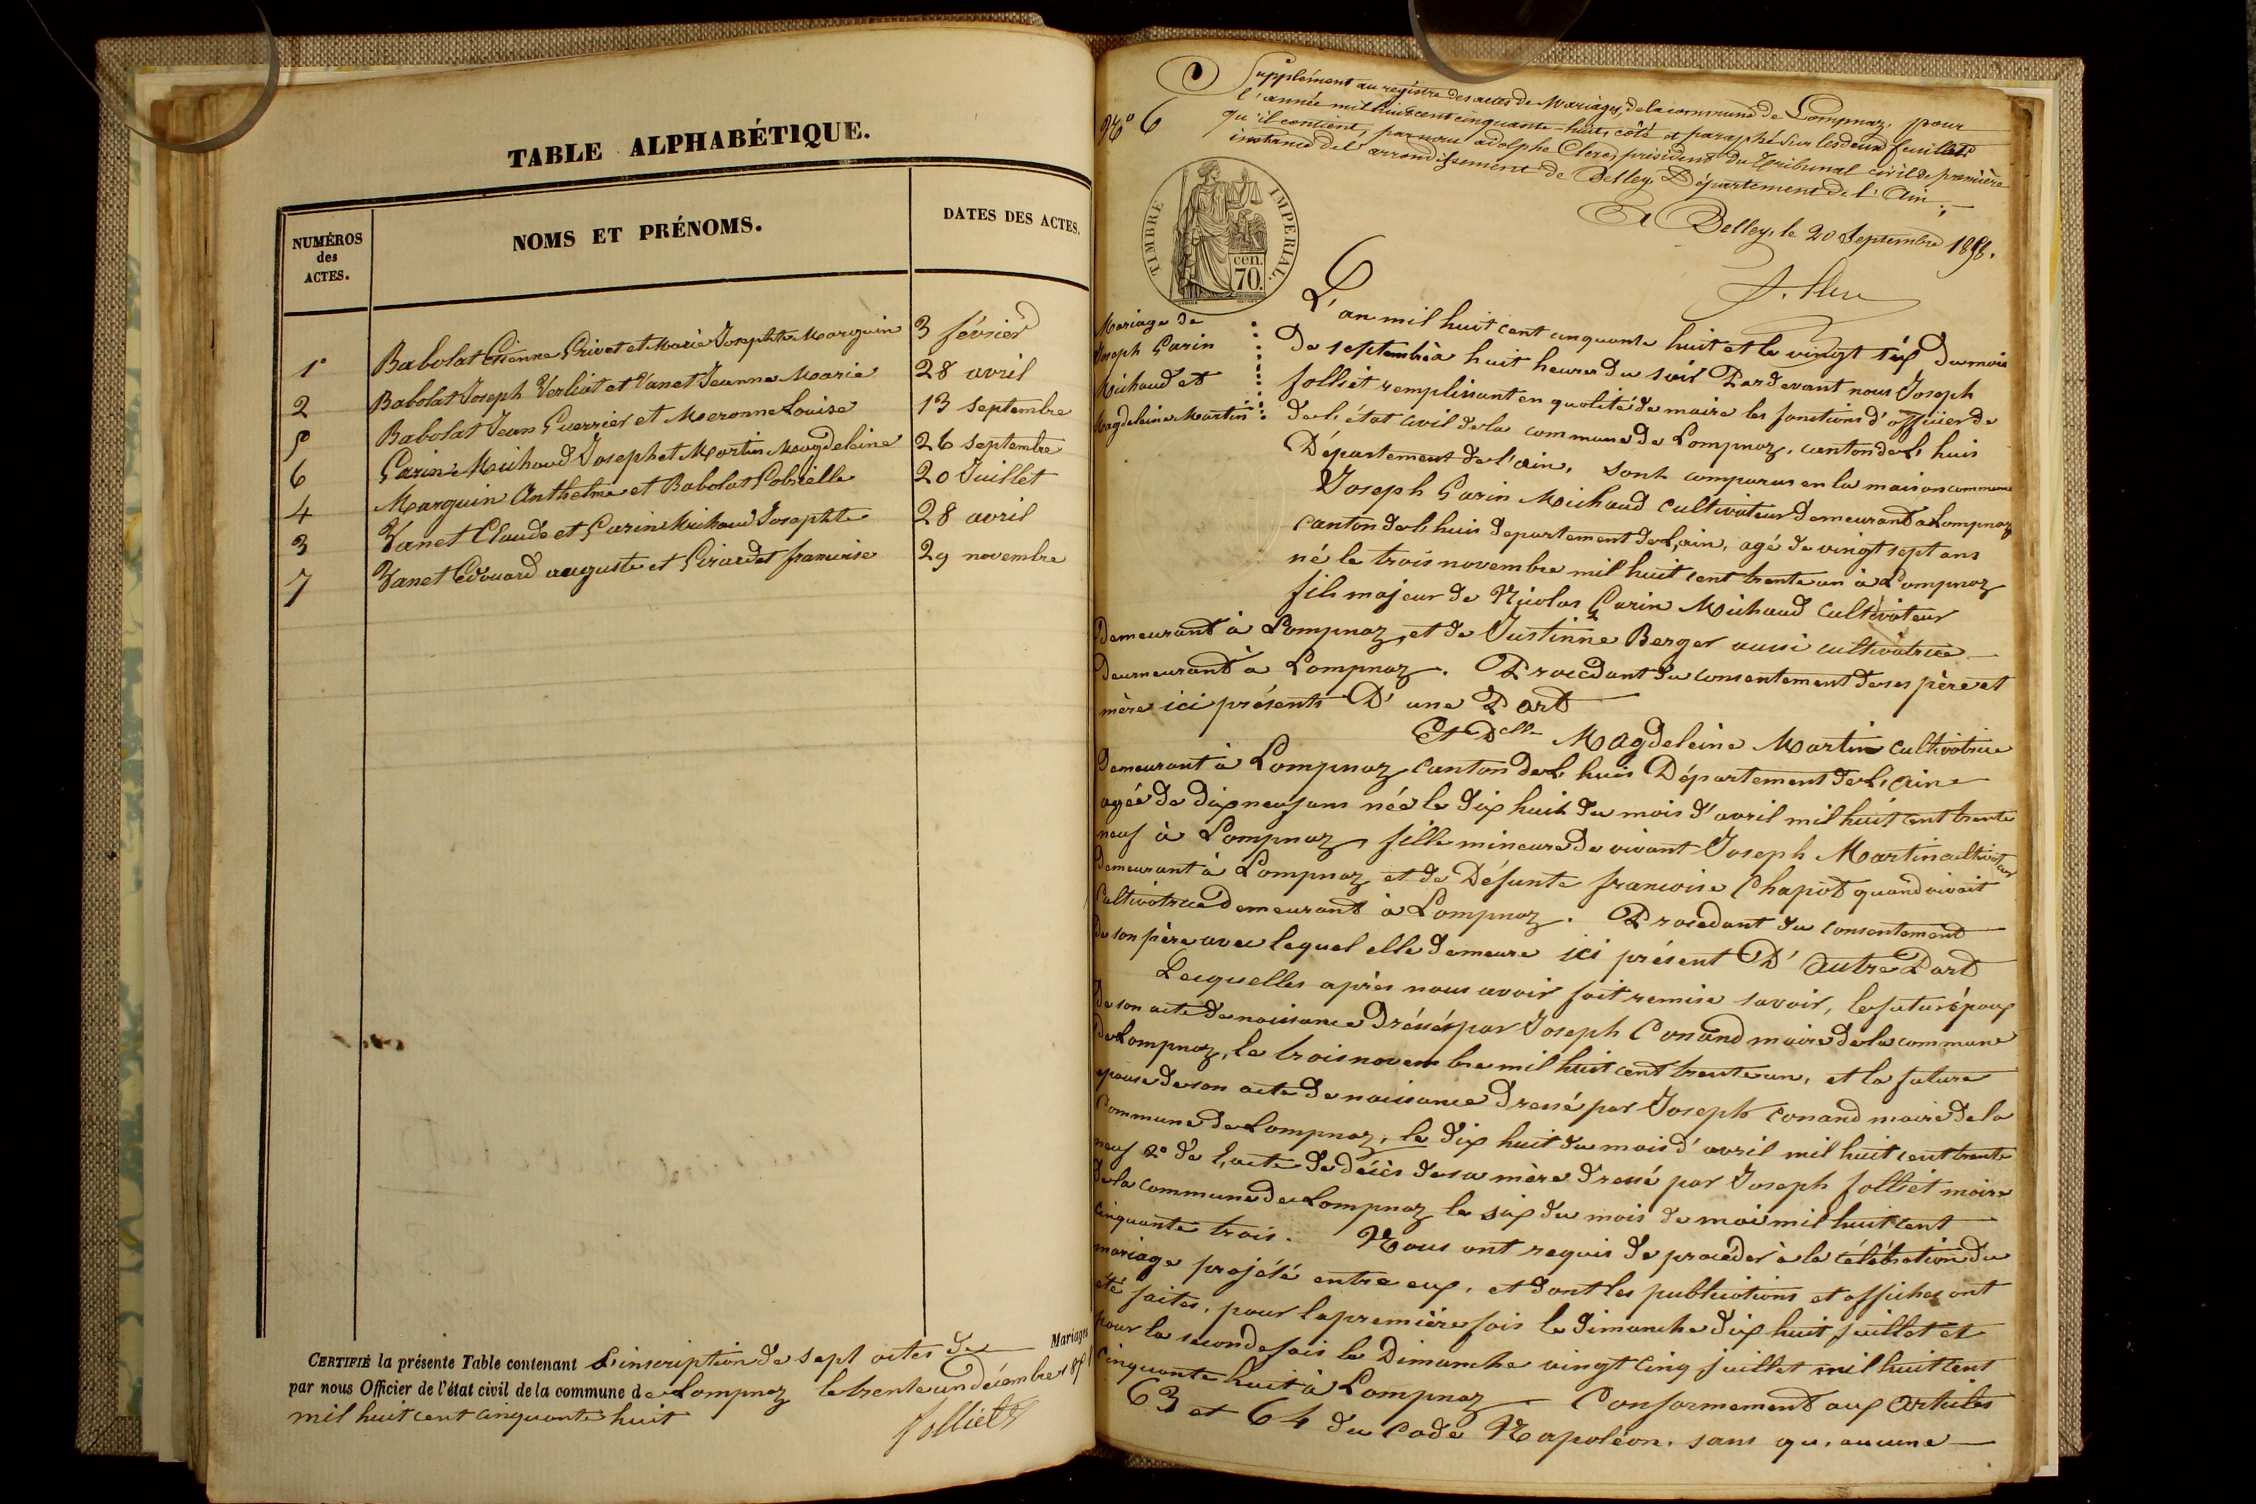 TABLE ALPHABÉTIQUE.
NUMÉROS des ACTES.
NOMS ET PRÉNOMS.
DATES DES ACTES.
1° Babolat Etienne Grivet et Marie Josephte Marguin 3 février
2 Babolat Joseph Verliat et Vanet Jeanne Marie 28 avril
5 Babolat Jean Guerrier et Meronne Louise 13 septembre
6 Garin Michaud Joseph et Martin Magdeleine 26 septembre
4 Marguin Anthelme et Babolat Gobrielle 20 Juillet
3 Vanet Claude et Garin Michaud Josephte 28 avril
7 Vanet Edouard auguste et Girardet francoise 29 novembre
CERTIFIÉ la présente Table contenant L'inscription de sept actes de Mariages
par nous Officier de l'état civil de la commune de Lompnaz le trente un décembre
mil huit cent cinquante huit
Jolliet
Supplément au registre des actes de Mariages, de la commune de Lompnaz, pour
l'année mil huit cent cinquante-huit, côté et paraphé sur les deux feuillets
qu'il contient, par nous adolphe Clerc, président du Tribunal civil de première
instance de l'arrondissement de Belley, Département de l'Ain;
A Belley, le 20 Septembre 1858.
A. Clerc
N° 6
TIMBRE IMPERIAL.
70 cen.
Mariage de
Joseph Garin
Michaud et
Magdeleine Martin
6
L'an mil huit cent cinquante huit et le vingt six du mois
de septembre à huit heures du soir Pardevant nous Joseph
Jolliet remplissant en qualité de maire les fonctions d'officier de
de l'état civil de la commune de Lompnaz, canton de L'huis
Département de l'ain, sont comparus en la maison commune
Joseph Garin Michaud cultivateur demeurant à Lompnaz
canton de L'huis departement de L'ain, agé de vingt sept ans
né le trois novembre mil huit cent trente un à Lompnaz
fils majeur de Nicolas Garin Michaud cultivateur
demeurant à Lompnaz et de Justinne Berger aussi cultivatrice
demeurant à Lompnaz. Procedant du consentement de ses père et
mère ici présents D'une Part
Et Delle Magdeleine Martin cultivatrice
demeurant à Lompnaz canton de L'huis Département de L'ain
agée de dix neuf ans née le dix huit du mois d'avril mil huit cent trente
neuf à Lompnaz, fille mineure de vivant Joseph Martin cultivateur
demeurant à Lompnaz et de Défunte francoise Chapot quand vivait
Cultivatrice demeurant à Lompnaz. Procedant du consentement
de son père avec lequel elle demeure ici présent D'autre Part
Lesquelles après nous avoir fait remise savoir, le futur époux
de son acte de naissance Dréssé par Joseph Conand maire de la commune
de Lompnaz, le trois novembre mil huit cent trente un, et la future
epouse de son acte de naissance Dressé par Joseph Conand maire de la
Commune de Lompnaz, le dix huit du mois d'avril mil huit cent trente
neuf 2° de l'acte de décès de sa mère dressé par Joseph Jolliet maire
de la commune de Lompnaz le six du mois de mai mil huit cent
cinquante trois. Nous ont requis de procéder à la célébration du
mariage projété entre eux, et dont les publications et affiches ont
été faites, pour la première fois le Dimanche dix huit juillet et
pour la seconde fois le Dimanche vingt cinq juillet mil huit cent
cinquante huit à Lompnaz Conformement aux articles
63 et 64 du Code Napoléon, sans qu'aucune